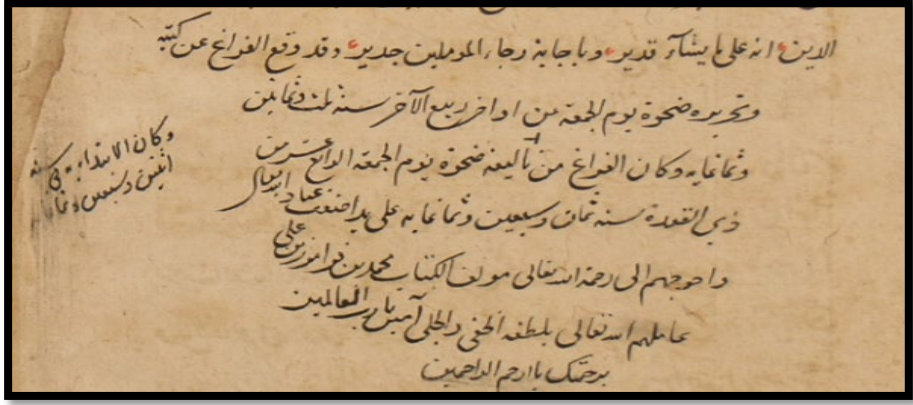 الدين انه على ما يشآء قدير وباجابة رجاء الموملين جدير وقد وقع الفراغ عن كتبه
وتحريره ضحوة يوم الجمعة من اواخر ربيع الآخر سنه ثلث وثمانين
وثمانمايه وكان الفراغ من تأليفه ضحوة يوم الجمعة الرابع عشر من
ذي القعدة سنه ثمان وسبعين وثمانمايه على يد اضعف عباد الله تعالى
واحوجهم الى رحمة الله تعالى مولف الكتاب محمد بن فرامرز بن علي
عاملهم الله تعالى بلطفه الخفي والجلي آمين يا رب العالمين
برحمتك يا ارحم الراحمين
وكان الابتداء به في سنه
اثنين وسبعين وثما